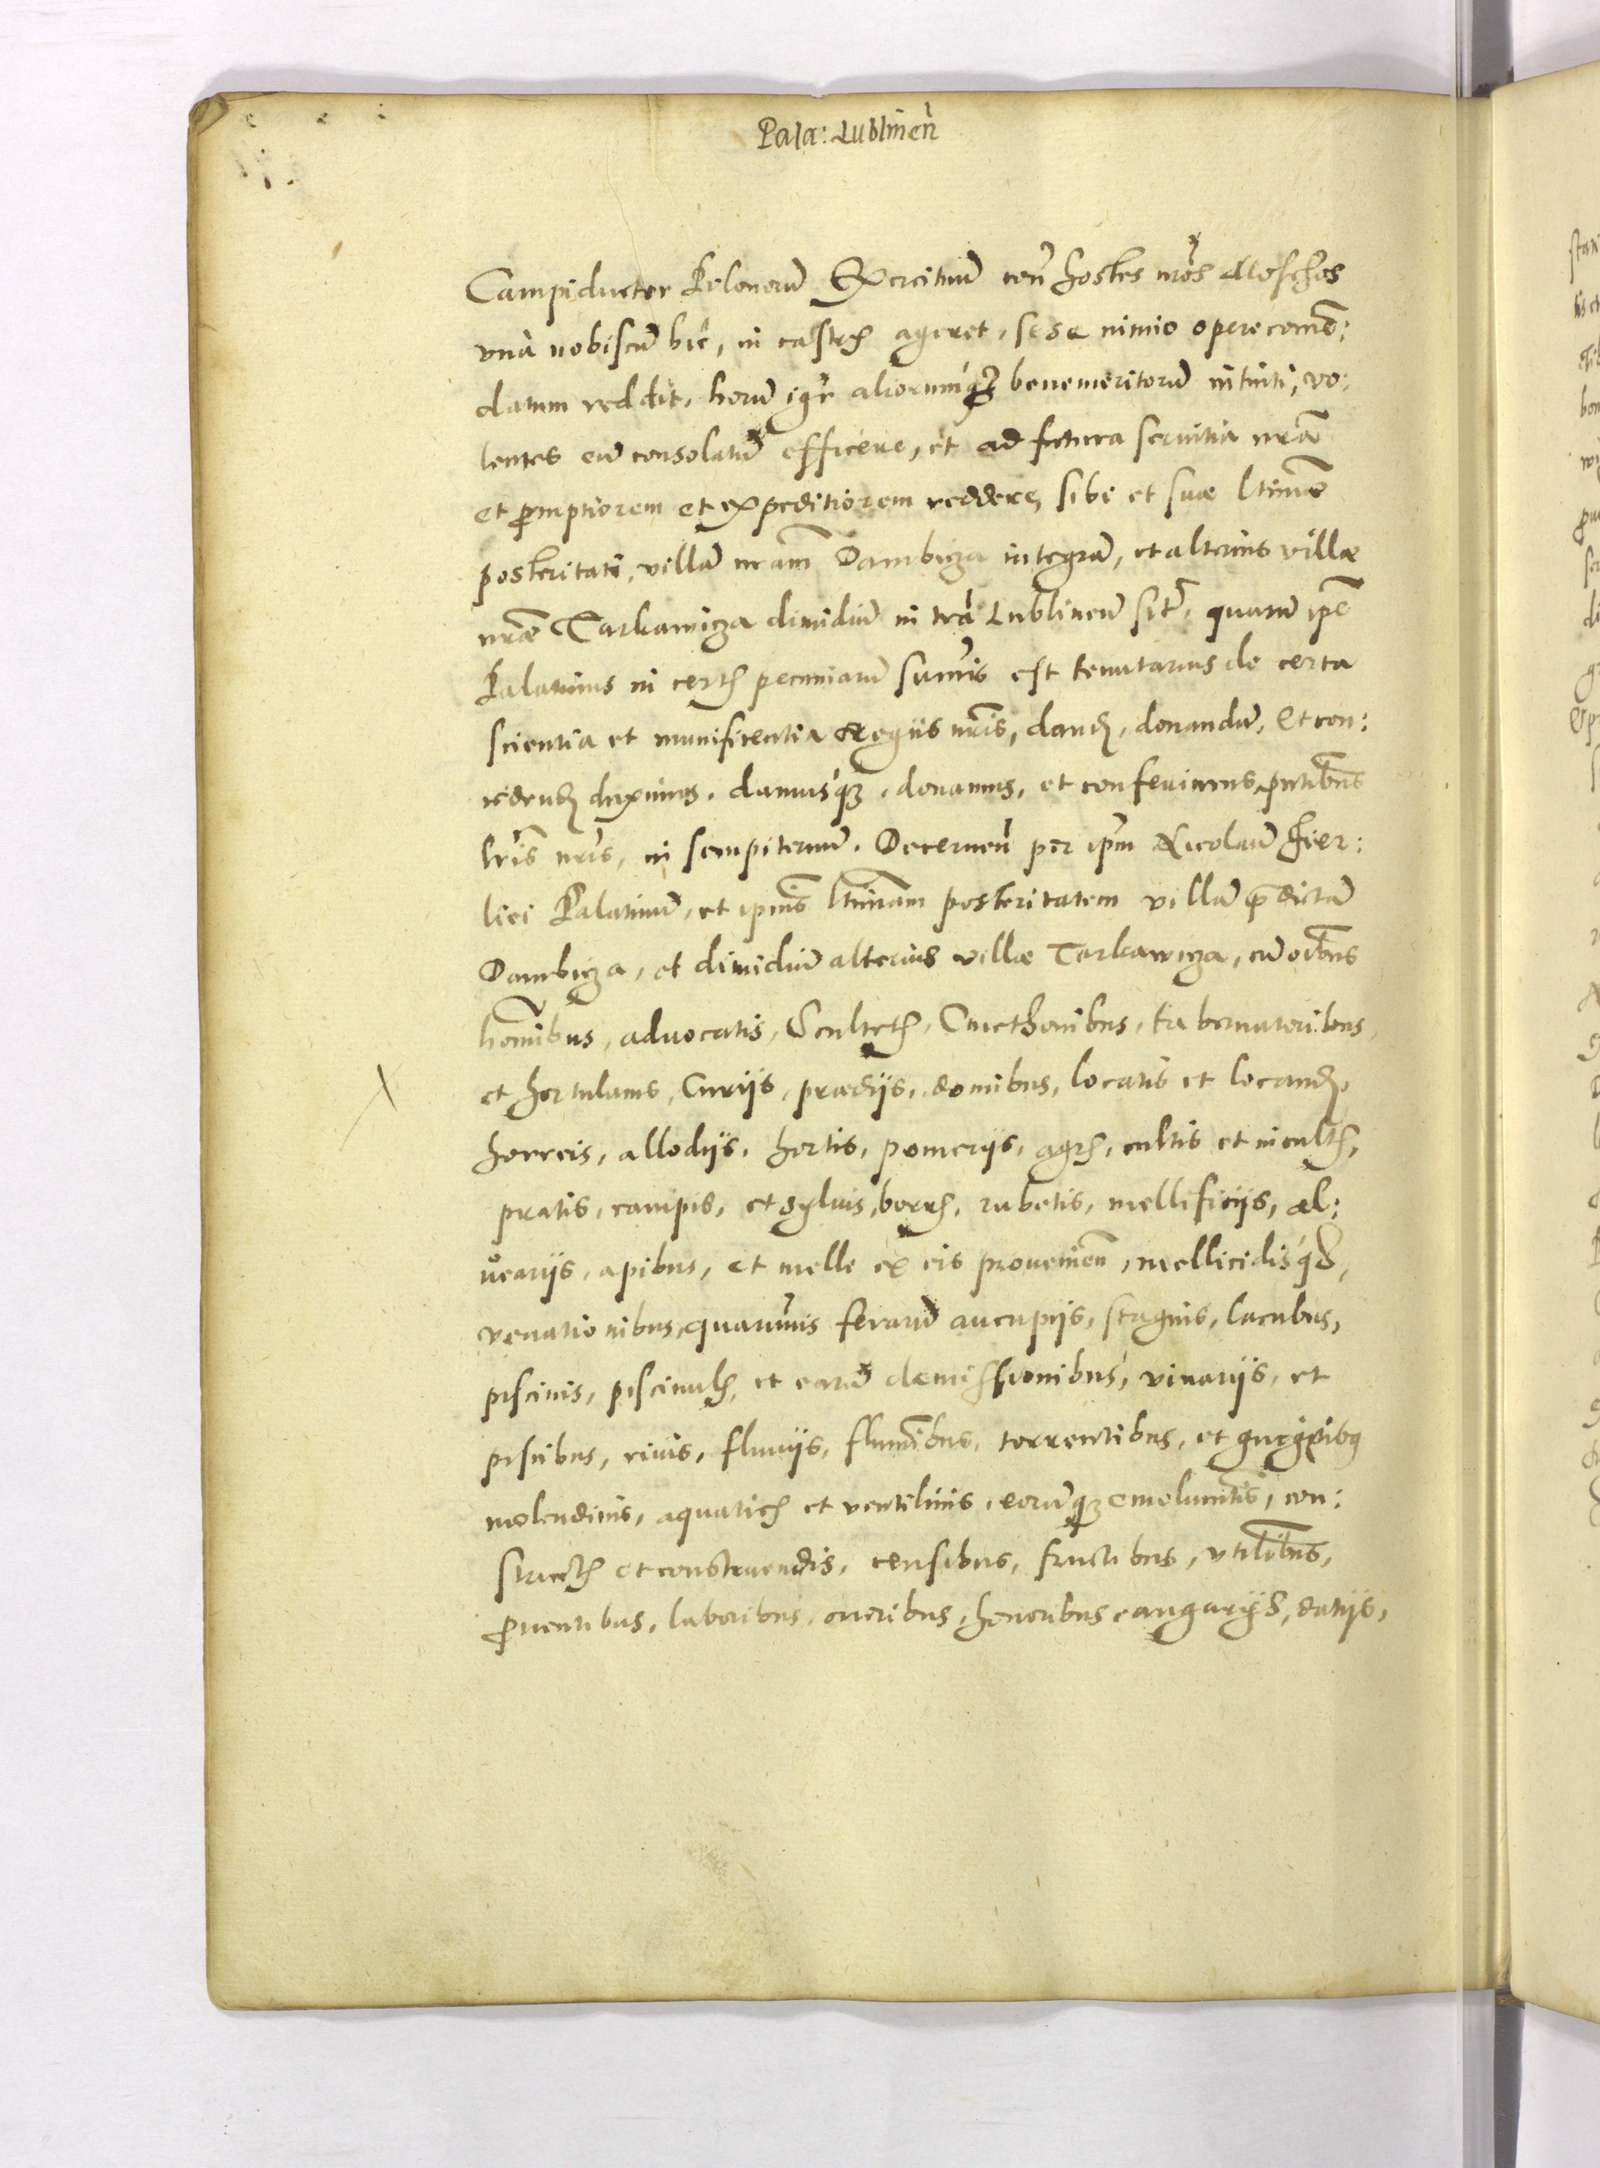 Pala: Lublineñ
Campiductor Polonorū Exercituū coñ hostes nr̃os Moschos
vnà nobiscū hic, in castris ageret, sese nimio opere comē:
datum reddit, horū igr̃ aliorumq́ȝ benemeritorū intuiti, vo:
lentes eū consolatū efficere, et ad futura seruitia nrã
et promptiorem et expeditiorem reddere, sibi et suæ ltimæ
posteritati, villā nr̃am Dambicza integrā, et alterius villæ
nr̃æ Tarkawicza dimidiū in tr̃a Lublineñ sit̃, quarū ip̃e
Palatinus in certis pecuniarū sum̃is est tenutarius de certa
scientia et munificentia Regiis nr̃is, dand, donandū, et con:
cedend duximus, damusq́ȝ, donamus, et conferimus, pn̄tibus
lr̃is nr̃is, in sempiternū. Decerneñ per ip̃m Nicolaū Fier:
liei Palatinū, et ipius ltimam posteritatem villā prædictā
Dambicza, et dimidiū alterius villæ Tarkawicza, cū oībus
homībus, aduocatis, Scultetis, Cmethonibus, tabernatoribus,
et hortulanis, Curijs, prædijs, domibus, locatis et locand,
horreis, allodijs, hortis, pomerijs, agris, cultis et incultis,
pratis, campis, et syluis, borris, rubetis, mellificijs, al:
uearijs, apibus, et melle ex eis proueniēn, mellicidisq́ȝ,
venationibus, quarumuis ferarū aucupijs, stagnis, lacubus,
piscinis, piscinulis, et earū demissionibus, viuarijs, et
piscibus, riuis, fluuijs, flumībus, torrentibus, et gurgitibȝ
molendinis, aquaticis et ventilinis, eorūqȝ emolumentis, con:
structis et construendis, censibus, fructibus, vtilībus,
prouentibus, laboribus, oneribus, honoribus angarijs, datijs,